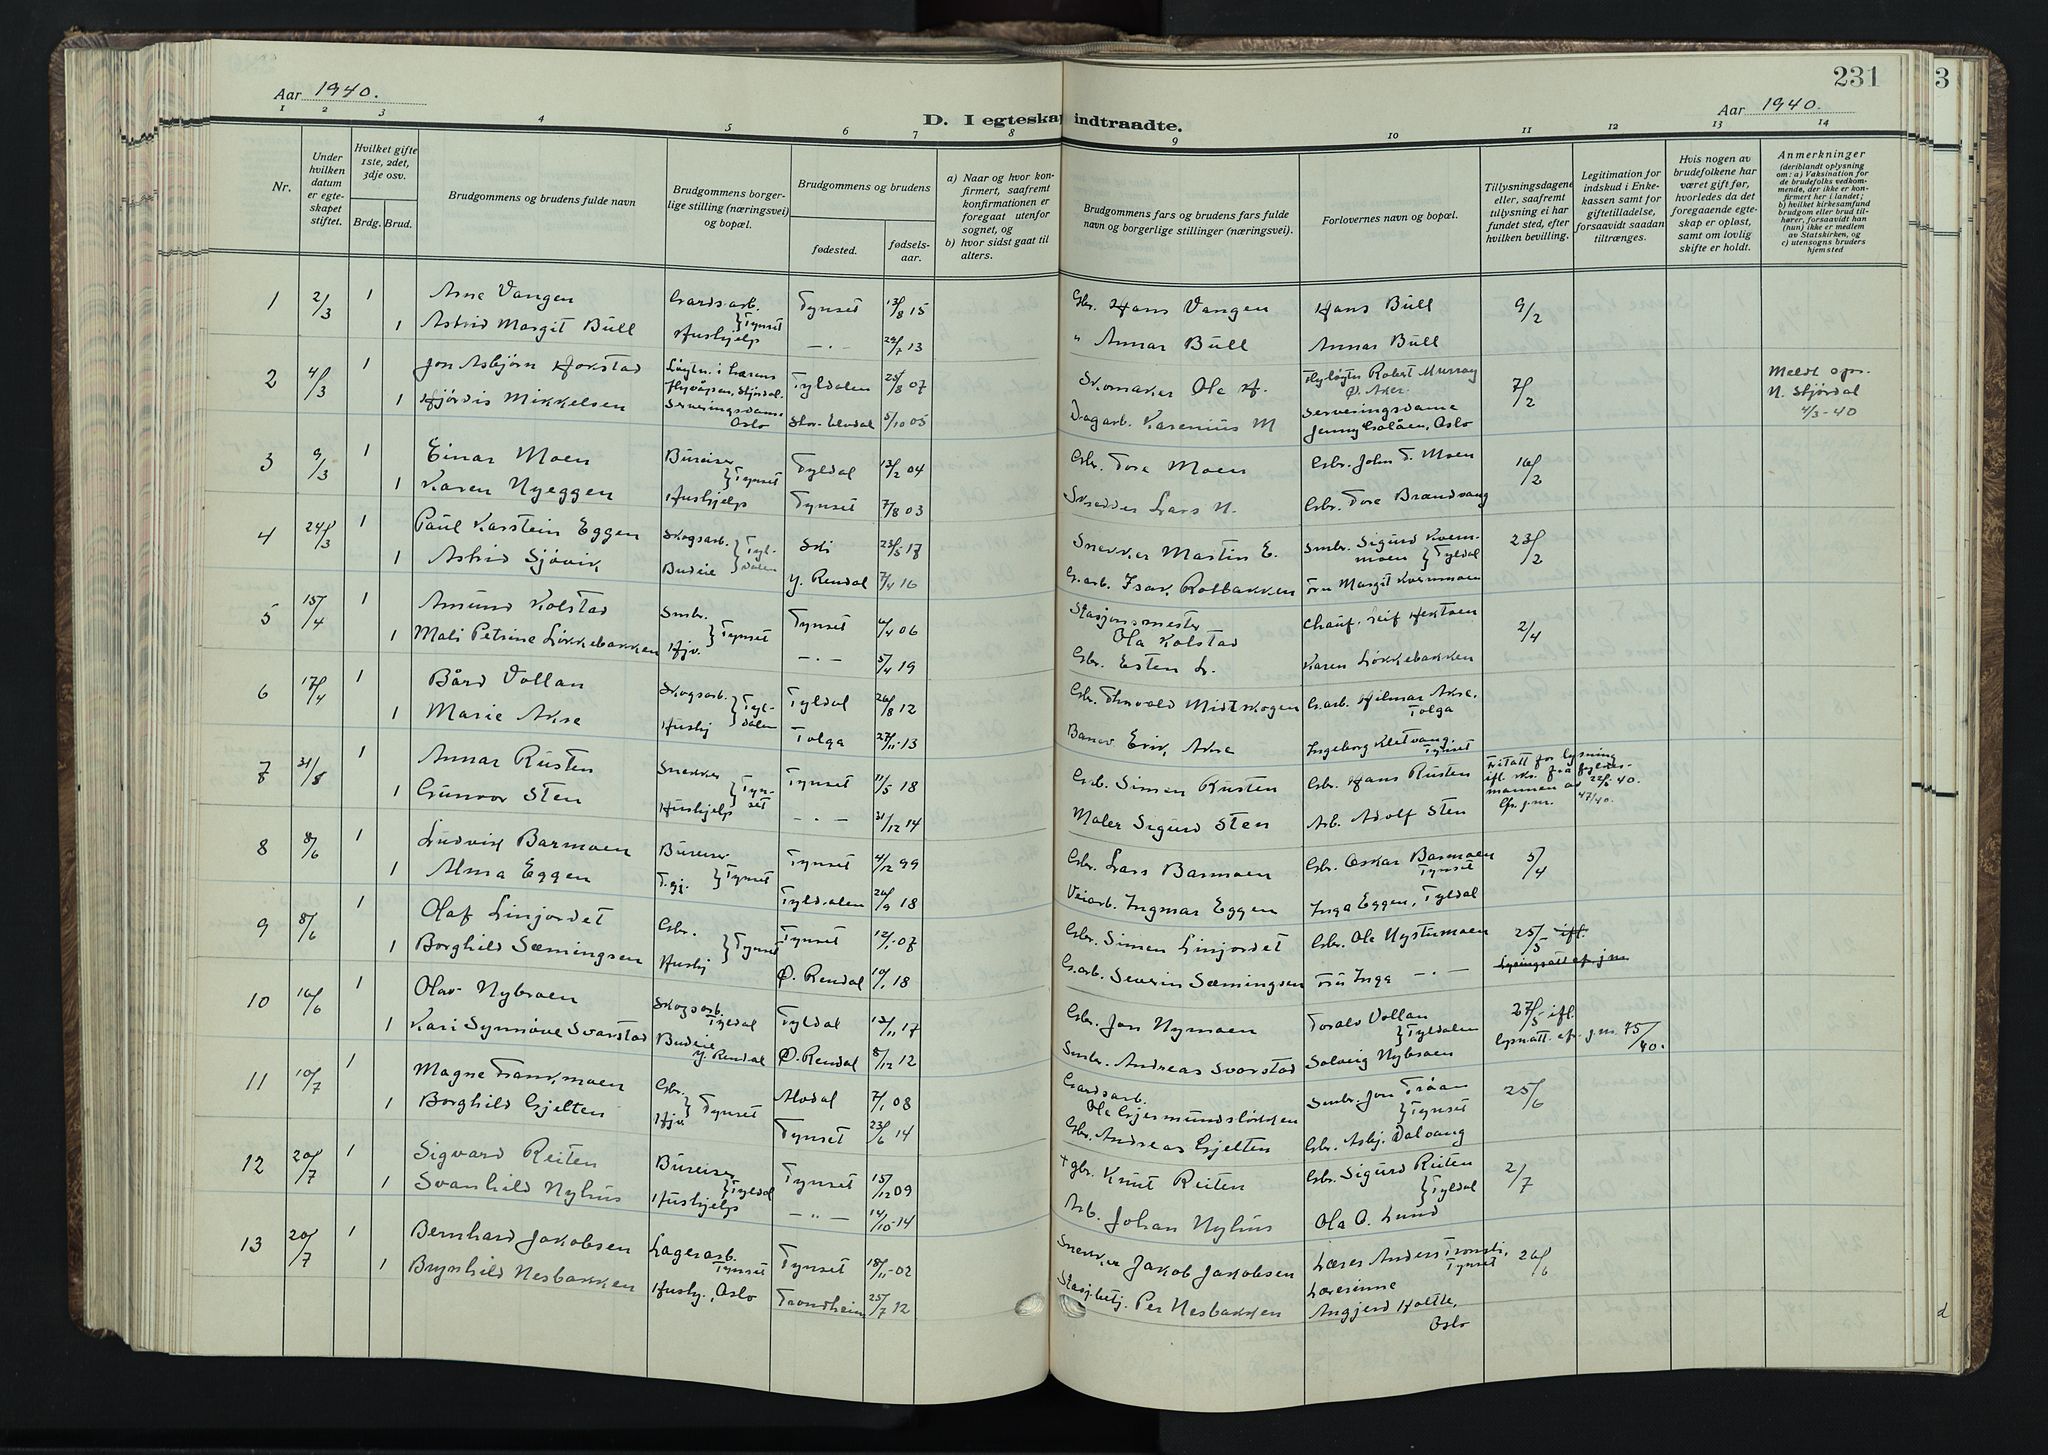 231
3
Aar 1940.
D. I egteskap indtraadte.
Aar 1940.
1 2 3 4 5 6 7 8 9 10 11 12 13 14
Nr.
Under hvilken datum er egteskapet stiftet.
Hvilket gifte 1ste, 2det, 3dje osv.
Brdg. Brud.
Brudgommens og brudens fulde navn
Brudgommens borgerlige stilling (næringsvei) og bopæl.
Brudgommens og brudens
fødested.
fødselsaar.
a) Naar og hvor konfirmert, saafremt konfirmationen er foregaat utenfor sognet, og
b) hvor sidst gaat til alters.
Brudgommens fars og brudens fars fulde navn og borgerlige stillinger (næringsvei).
Forlovernes navn og bopæl.
Tillysningsdagene eller, saafremt tillysning ei har fundet sted, efter hvilken bevilling.
Legitimation for indskud i Enkekassen samt for giftetilladelse, forsaavidt saadan tiltrænges.
Hvis nogen av brudefolkene har været gift før, hvorledes da det foregaaende egteskap er opløst, samt om lovlig skifte er holdt.
Anmerkninger
(deriblandt oplysning om: a) Vaksination for de brudefolks vedkommende, der ikke er konfirmert her i landet, b) hvilket kirkesamfund brudgom eller brud tilhører, forsaavidt han (hun) ikke er medlem av Statskirken, og c) utensogns bruders hjemsted
1 2/3 1 Arne Vangen Gardsarb. } Tynset Tynset 13/8 15 Gbr. Hans Vangen Hans Bull 9/2
1 Astrid Margit Bull Hushjelp — . — 29/7 13 " Annar Bull Annar Bull
2 4/3 1 Jon Asbjørn Hokstad Løytn. i Hærens Flyvåpen, Stjørdal. Tyldalen 25/8 07 Skomaker Ole H. Flyløytn Robert Murray Ø. Aker. 7/2 Meldt opr. N. Stjørdal 4/3-40
1 Hjørdis Mikkelsen Serveringsdame Oslo Stor-Elvdal 5/10 05 Dagarb. Karenius M Serveringsdame Jenny Galåen, Oslo
3 9/3 1 Einar Moen Bureiser } Tynset Tyldal 13/2 04 Gbr. Tore Moen Gbr. John T. Moen 16/2
1 Karen Nyeggen Hushjelp Tynset 7/8 03 Skredder Lars N. Gbr. Tore Brandvang
4 24/3 1 Paul Karstein Eggen Skogsarb. } Tyldalen Ski 23/5 17 Snekker Martin E. Smbr. Sigurd Kvernmoen } Tyldal 23/2
1 Astrid Sjøvik Budeie Y. Rendal 7/4 16 G.arb. Isak Rotbakken Fru Margit Kvernmoen
5 15/4 1 Amund Kolstad Smbr. } Tynset Tynset 4/4 06 Stasjonsmester Ola Kolstad Chauf. Leif Hektoen 2/4
1 Mali Petrine Løkkebakken Hjv. — . — 5/4 19 Gbr. Esten L. Karen Løkkebakken
6 17/4 1 Bård Vollan Skogsarb. } Tyldalen Tyldal 20/8 12 Gbr. Thorvald Midtskogen G.arb. Hilmar Akre, Tolga
1 Marie Akre Hushj Tolga 27/11-13 Banev. Erik Akre Ingeborg Kletvang. Tynset
7 31/8 1 Annar Rusten Snekker } Tynset Tynset 11/5 18 Gbr. Simen Rusten Gbr. Hans Rusten Fritatt for lysning ifl. skr. frå fylkesmannen av 22/5-40. Cfr. j.nr. 47/40.
1 Gunvor Sten Hushjelp — . — 31/12 14 Maler Sigurd Sten Arb. Adolf Sten
8 8/6 1 Ludvik Barmoen Bureiser } Tynset Tynset 4/12 99 Gbr. Lars Barmoen Gbr. Oskar Barmoen Tynset 5/4
1 Alma Eggen T.gj. Tyldalen 20/9 18 Veiarb. Ingmar Eggen Inga Eggen, Tyldal
9 8/6 1 Olaf Linjordet Gbr. } Tynset Tynset 12/1-07 Gbr. Simen Linjordet Gbr. Ole Nystumoen 25/5 ifl.
1 Borghild Sæmingsen Hushj Ø. Rendal 10/1 18 G.arb. Severin Sæmingsen Fru Inga — . — Lysingsatt cf j nr
10 16/6 1 Olav Nybroen Skogsarb. Tyldal Tyldal 13/11 17 Gbr. Jon Nymoen Torals Vollan } Tyldalen 27/5 ifl. lysn.att. cf. j.nr. 75/40.
1 Kari Synnøve Svarstad Budeie Y. Rendal Ø. Rendal 8/12 12 Smbr. Andreas Svarstad Solveig Nybroen
11 10/7 1 Magne Tronkmoen Gbr. } Tynset Alvdal 7/1 08 Gardsarb. Ole Gjermundsløkken Smbr. Jon Trøan } Tynset 25/6
1 Borghild Gjelten Hjv. Tynset 23/6 14 Gbr. Andreas Gjelten Gbr. Asbj. Dalvang
12 20/7 1 Sigvard Reiten Bureiser } Tyldal Tynset 15/12 09 + gbr. Knut Reiten Gbr. Sigurd Reiten } Tyldal 2/7
1 Svanhild Nyhus Hushjelp — " — 14/10-14 Arb. Johan Nyhus Ola O. Lund
13 20/7 1 Bernhard Jakobsen Lagerarb. Tynset Tynset 18/11-02 Snekker Jakob Jakobsen Lærer Anders Tronsli, Tynset 26/6
1 Brynhild Nesbakken Hushj., Oslo Trondheim 25/7 12 Stasj.betj. Per Nesbakken Lærerinne Angjerd Holtle, Oslo
d